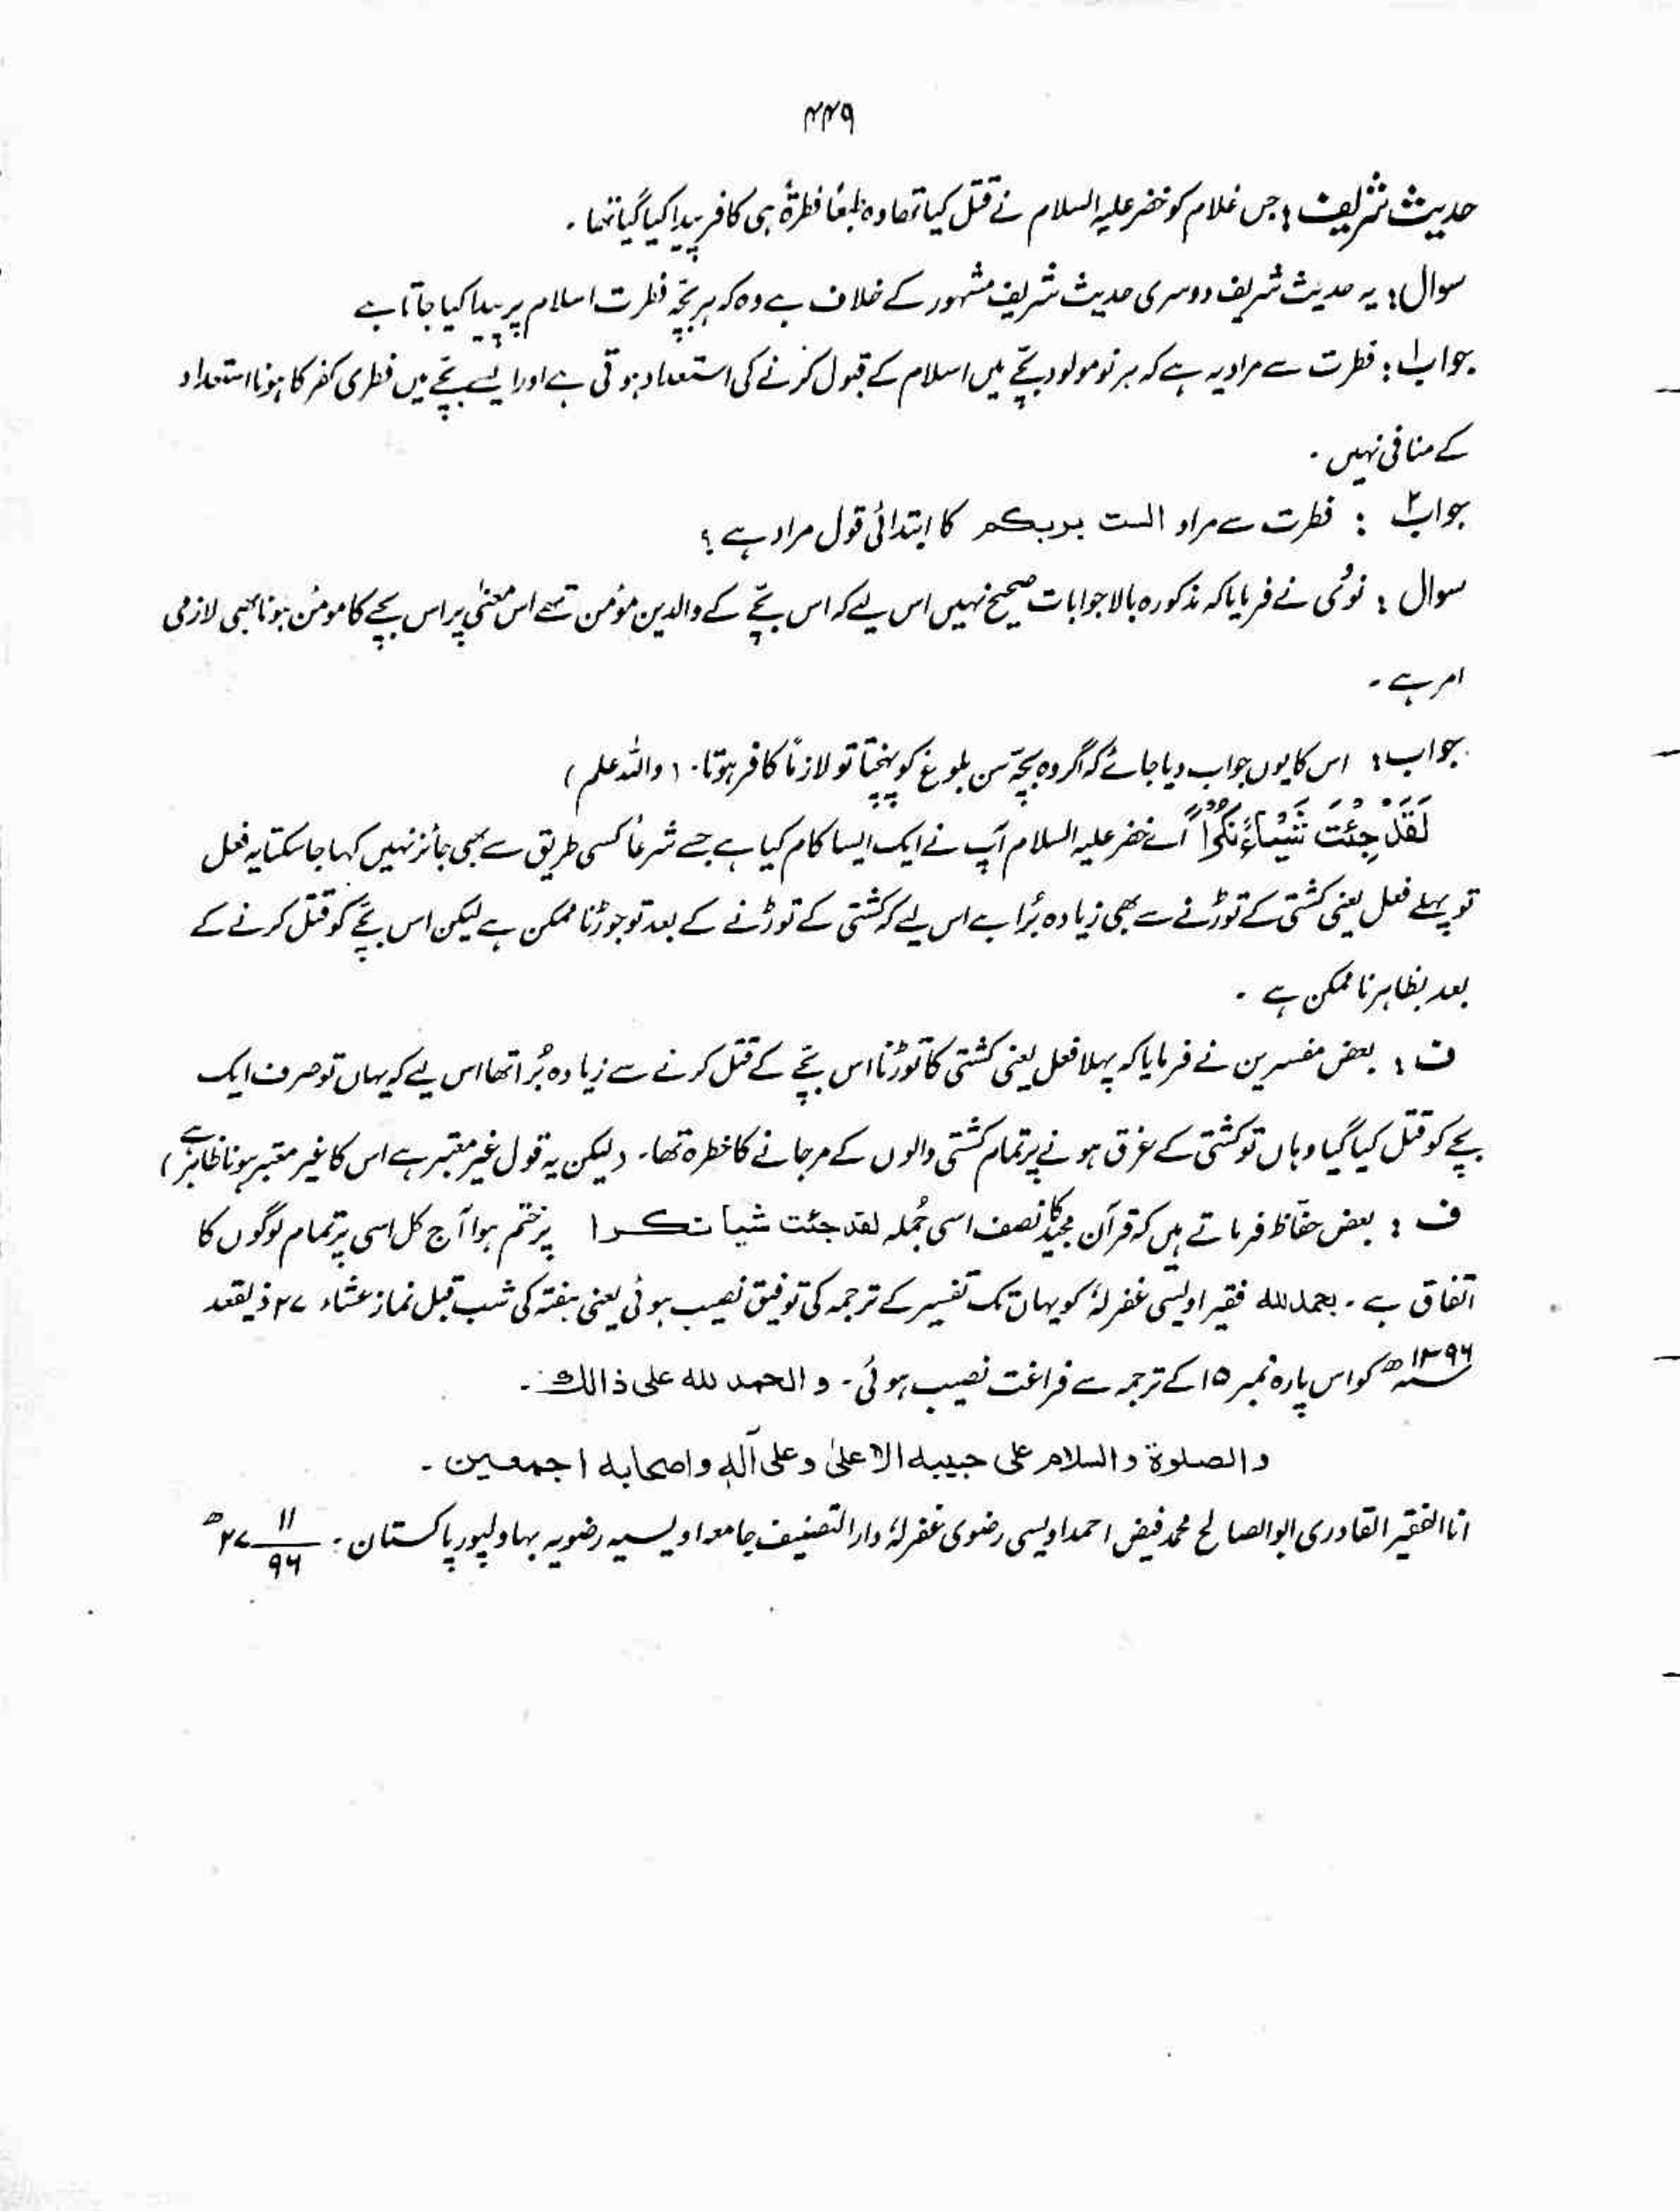 ۴۴۹
حدیث شریف : جس غلام کو خضر علیہ السلام نے قتل کیا تھا وہ طبعًا فطرۃً ہی کافر پیدا کیا گیا تھا ۔
سوال : یہ حدیث شریف دوسری حدیث شریف مشہور کے خلاف ہے وہ کہ ہر بچّہ فطرت اسلام پر پیدا کیا جاتا ہے
جواب۱ : فطرت سے مراد یہ ہے کہ ہر نومولود بچّے میں اسلام کے قبول کرنے کی استعداد ہوتی ہے اور ایسے بچّے میں فطری کفر کا ہونا استعداد
کے منافی نہیں ۔
جواب۲ : فطرت سے مراد الست بربکم کا ابتدائی قول مراد ہے ؟
سوال : نووی نے فرمایا کہ مذکورہ بالا جوابات صحیح نہیں اس لیے کہ اس بچّے کے والدین مؤمن تھے اس معنیٰ پر اس بچے کا مومن ہونا بھی لازمی
امر ہے ۔
جواب : اس کا یوں جواب دیا جائے کہ اگر وہ بچّہ سن بلوغ کو پہنچتا تو لازمًا کافر ہوتا ۔ ( واللہ علم )
لَقَدْ جِئْتَ شَيْئاءً نُكْرًا اے خضر علیہ السلام آپ نے ایک ایسا کام کیا ہے جسے شرعًا کسی طریق سے بھی جائز نہیں کہا جا سکتا یہ فعل
تو پہلے فعل یعنی کشتی کے توڑنے سے بھی زیادہ بُرا ہے اس لیے کہ کشتی کے توڑنے کے بعد تو جوڑنا ممکن ہے لیکن اس بچّے کو قتل کرنے کے
بعد بظاہر نا ممکن ہے ۔
ف : بعض مفسرین نے فرمایا کہ پہلا فعل یعنی کشتی کا توڑنا اس بچّے کے قتل کرنے سے زیادہ بُرا تھا اس لیے کہ یہاں تو صرف ایک
بچے کو قتل کیا گیا وہاں تو کشتی کے غرق ہونے پر تمام کشتی والوں کے مر جانے کا خطرہ تھا ۔ ( لیکن یہ قول غیر معتبر ہے اس کا غیر معتبر ہونا ظاہر ہے )
ف : بعض حفّاظ فرماتے ہیں کہ قرآن مجید کا نصف اسی جُملہ لقد جئت شیا نکرا پر ختم ہوا آج کل اسی پر تمام لوگوں کا
اتفاق ہے ۔ بحمدللہ فقیر اویسی غفرلہٗ کو یہاں تک تفسیر کے ترجمہ کی توفیق نصیب ہوئی یعنی ہفتہ کی شب قبل نماز عشاء ۲۷ ذیقعد
۱۳۹۶ھ کو اس پارہ نمبر ۱۵ کے ترجمہ سے فراغت نصیب ہوئی ۔ و الحمد للہ علی ذالک ۔
والصلوۃ والسلام علی حبیبہ الاعلیٰ وعلی آلہٖ واصحابہ اجمعین ۔
انا الفقیر القادری ابو الصالح محمد فیض احمد اویسی رضوی غفرلہٗ دارالتصنیف جامعہ اویسیہ رضویہ بہاولپور پاکستان ۔ ۲۷ ۱۱/۹۶ ھ